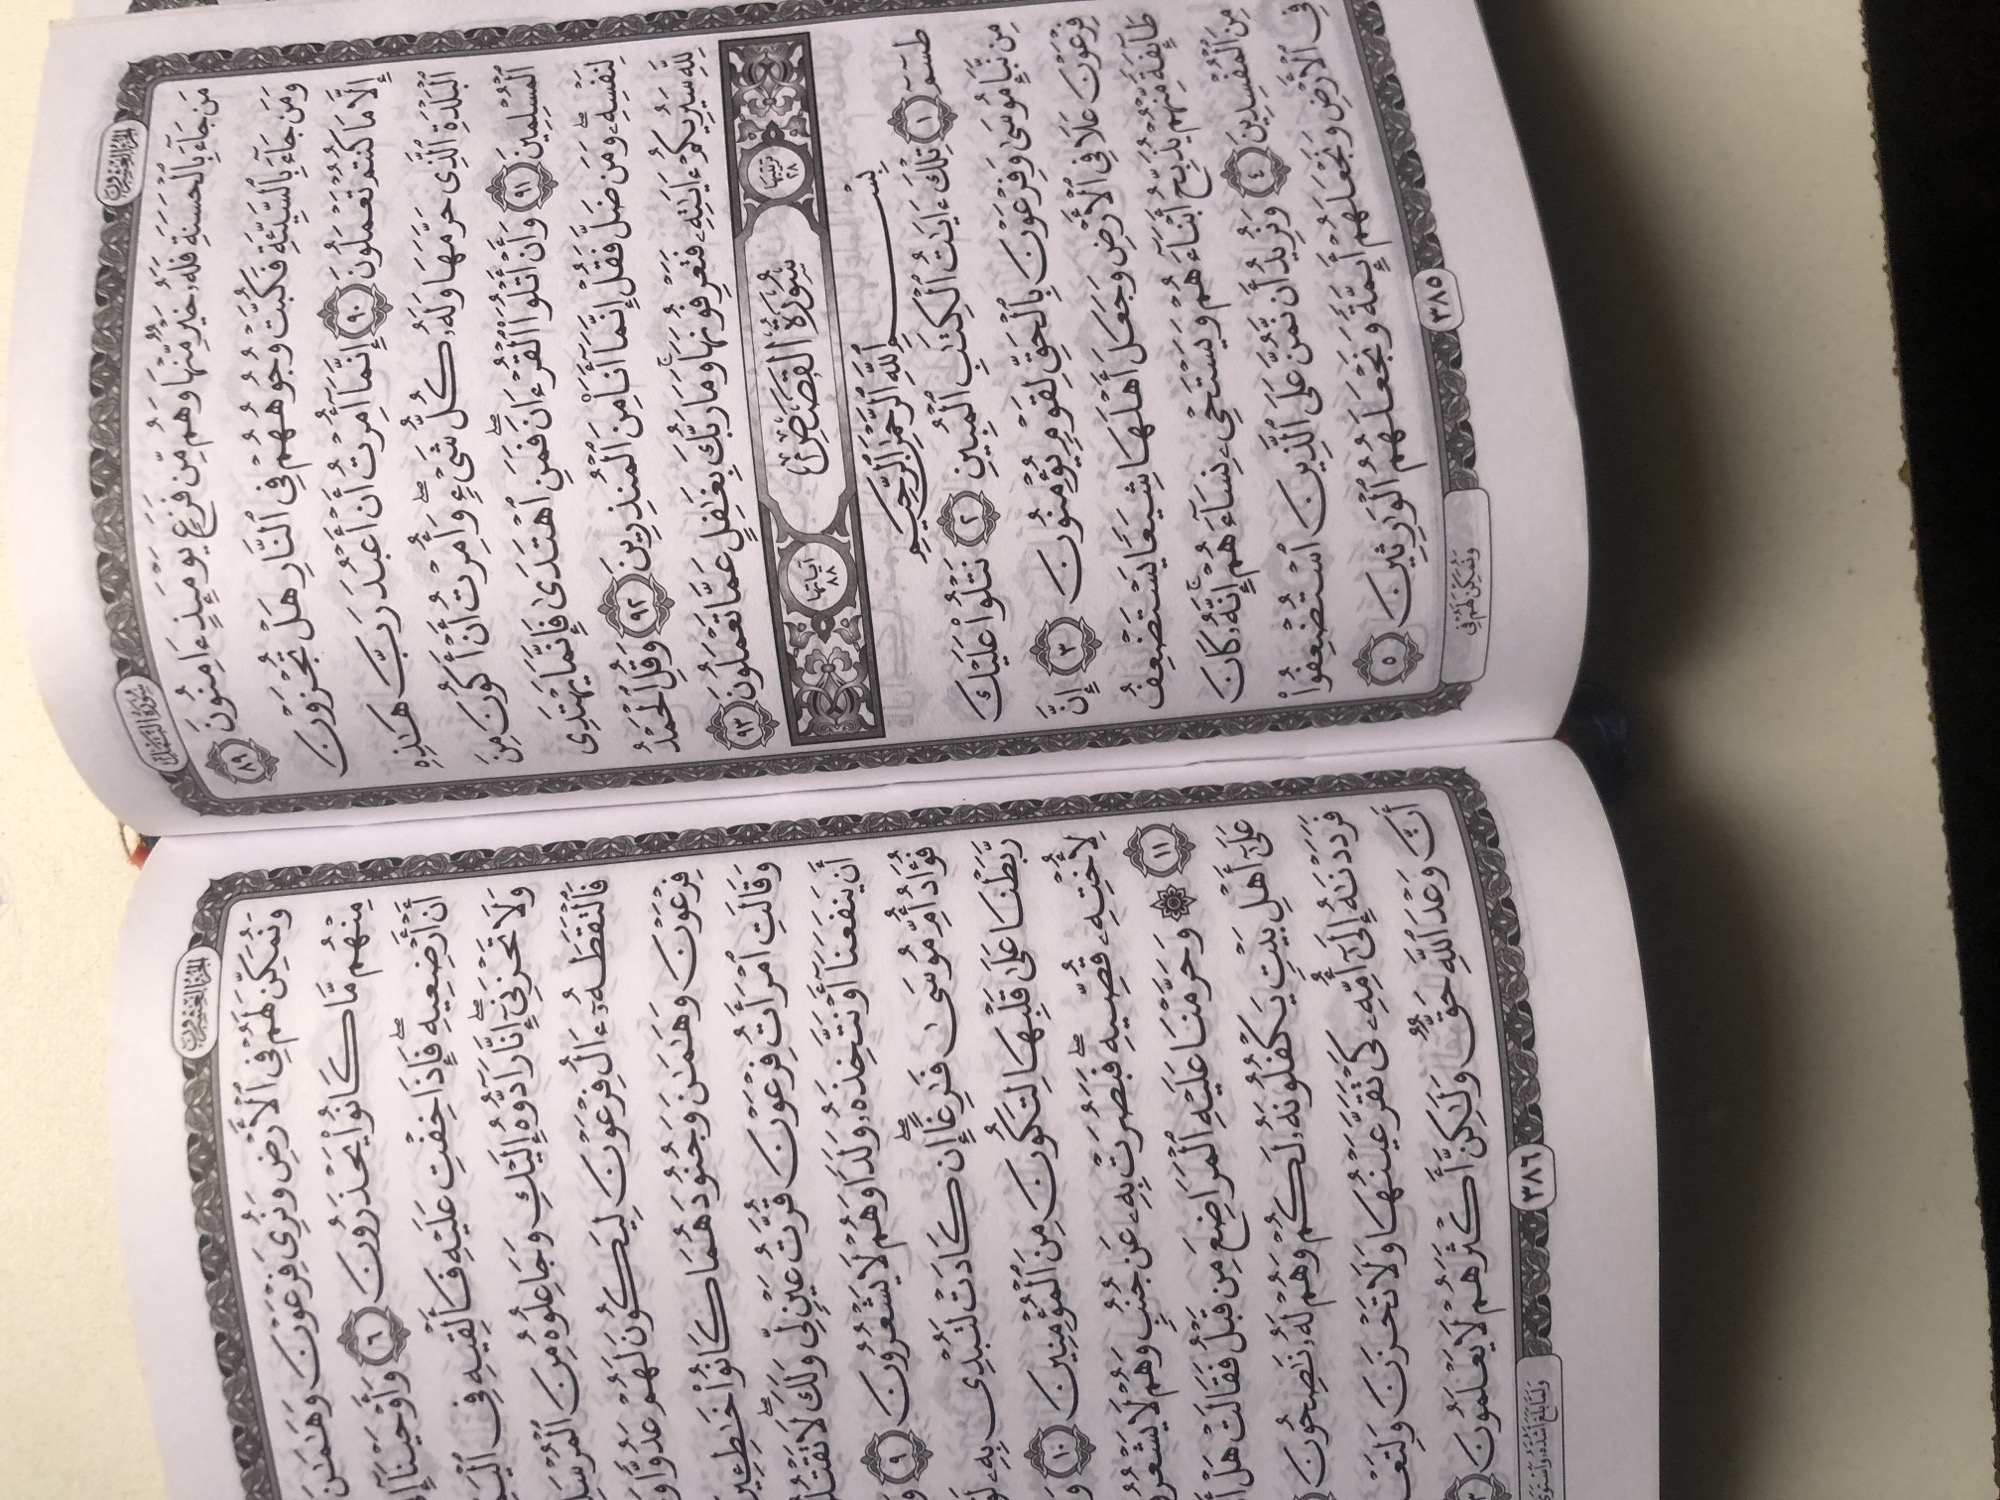 سُورَةُ النَّمْلِ
الجُزْءُ العِشْرُونَ
مَن جَآءَ بِٱلْحَسَنَةِ فَلَهُۥ خَيْرٌ مِّنْهَا وَهُم مِّن فَزَعٍ يَوْمَئِذٍ ءَامِنُونَ ٨٩
وَمَن جَآءَ بِٱلسَّيِّئَةِ فَكُبَّتْ وُجُوهُهُمْ فِى ٱلنَّارِ هَلْ تُجْزَوْنَ
إِلَّا مَا كُنتُمْ تَعْمَلُونَ ٩٠ إِنَّمَآ أُمِرْتُ أَنْ أَعْبُدَ رَبَّ هَـٰذِهِ
ٱلْبَلْدَةِ ٱلَّذِى حَرَّمَهَا وَلَهُۥ كُلُّ شَىْءٍ ۖ وَأُمِرْتُ أَنْ أَكُونَ مِنَ
ٱلْمُسْلِمِينَ ٩١ وَأَنْ أَتْلُوَا۟ ٱلْقُرْءَانَ ۖ فَمَنِ ٱهْتَدَىٰ فَإِنَّمَا يَهْتَدِى
لِنَفْسِهِۦ ۖ وَمَن ضَلَّ فَقُلْ إِنَّمَآ أَنَا۠ مِنَ ٱلْمُنذِرِينَ ٩٢ وَقُلِ ٱلْحَمْدُ
لِلَّهِ سَيُرِيكُمْ ءَايَـٰتِهِۦ فَتَعْرِفُونَهَا ۚ وَمَا رَبُّكَ بِغَـٰفِلٍ عَمَّا تَعْمَلُونَ ٩٣
تَرْتِيبُهَا ٢٨ سُورَةُ القَصَصِ آيَاتُهَا ٨٨
بِسْمِ ٱللَّهِ ٱلرَّحْمَـٰنِ ٱلرَّحِيمِ
طسٓمٓ ١ تِلْكَ ءَايَـٰتُ ٱلْكِتَـٰبِ ٱلْمُبِينِ ٢ نَتْلُوا۟ عَلَيْكَ
مِن نَّبَإِ مُوسَىٰ وَفِرْعَوْنَ بِٱلْحَقِّ لِقَوْمٍ يُؤْمِنُونَ ٣ إِنَّ
فِرْعَوْنَ عَلَا فِى ٱلْأَرْضِ وَجَعَلَ أَهْلَهَا شِيَعًا يَسْتَضْعِفُ
طَآئِفَةً مِّنْهُمْ يُذَبِّحُ أَبْنَآءَهُمْ وَيَسْتَحْىِۦ نِسَآءَهُمْ ۚ إِنَّهُۥ كَانَ
مِنَ ٱلْمُفْسِدِينَ ٤ وَنُرِيدُ أَن نَّمُنَّ عَلَى ٱلَّذِينَ ٱسْتُضْعِفُوا۟
فِى ٱلْأَرْضِ وَنَجْعَلَهُمْ أَئِمَّةً وَنَجْعَلَهُمُ ٱلْوَٰرِثِينَ ٥
وَنُمَكِّنَ لَهُمْ فِى
٣٨٥
الجُزْءُ العِشْرُونَ
وَنُمَكِّنَ لَهُمْ فِى ٱلْأَرْضِ وَنُرِىَ فِرْعَوْنَ وَهَـٰمَـٰنَ
مِنْهُم مَّا كَانُوا۟ يَحْذَرُونَ ٦ وَأَوْحَيْنَآ
أَنْ أَرْضِعِيهِ ۖ فَإِذَا خِفْتِ عَلَيْهِ فَأَلْقِيهِ فِى
وَلَا تَحْزَنِىٓ ۖ إِنَّا رَآدُّوهُ إِلَيْكِ وَجَاعِلُوهُ مِنَ
فَٱلْتَقَطَهُۥٓ ءَالُ فِرْعَوْنَ لِيَكُونَ لَهُمْ عَدُوًّا
فِرْعَوْنَ وَهَـٰمَـٰنَ وَجُنُودَهُمَا كَانُوا۟
وَقَالَتِ ٱمْرَأَتُ فِرْعَوْنَ قُرَّتُ عَيْنٍ لِّى وَلَكَ ۖ لَا
أَن يَنفَعَنَآ أَوْ نَتَّخِذَهُۥ وَلَدًا وَهُمْ لَا يَشْعُرُونَ ٩
فُؤَادُ أُمِّ مُوسَىٰ فَـٰرِغًا ۖ إِن كَادَتْ لَتُبْدِى بِهِۦ
رَّبَطْنَا عَلَىٰ قَلْبِهَا لِتَكُونَ مِنَ ٱلْمُؤْمِنِينَ ١٠
لِأُخْتِهِۦ قُصِّيهِ ۖ فَبَصُرَتْ بِهِۦ عَن جُنُبٍ وَهُمْ لَا
١١ ۞ وَحَرَّمْنَا عَلَيْهِ ٱلْمَرَاضِعَ مِن قَبْلُ فَقَالَتْ هَلْ
عَلَىٰٓ أَهْلِ بَيْتٍ يَكْفُلُونَهُۥ لَكُمْ وَهُمْ لَهُۥ نَـٰصِحُونَ
فَرَدَدْنَـٰهُ إِلَىٰٓ أُمِّهِۦ كَىْ تَقَرَّ عَيْنُهَا وَلَا تَحْزَنَ
أَنَّ وَعْدَ ٱللَّهِ حَقٌّ وَلَـٰكِنَّ أَكْثَرَهُمْ لَا يَعْلَمُونَ
وَلَمَّا بَلَغَ أَشُدَّهُۥ وَٱسْتَوَىٰٓ
٣٨٦